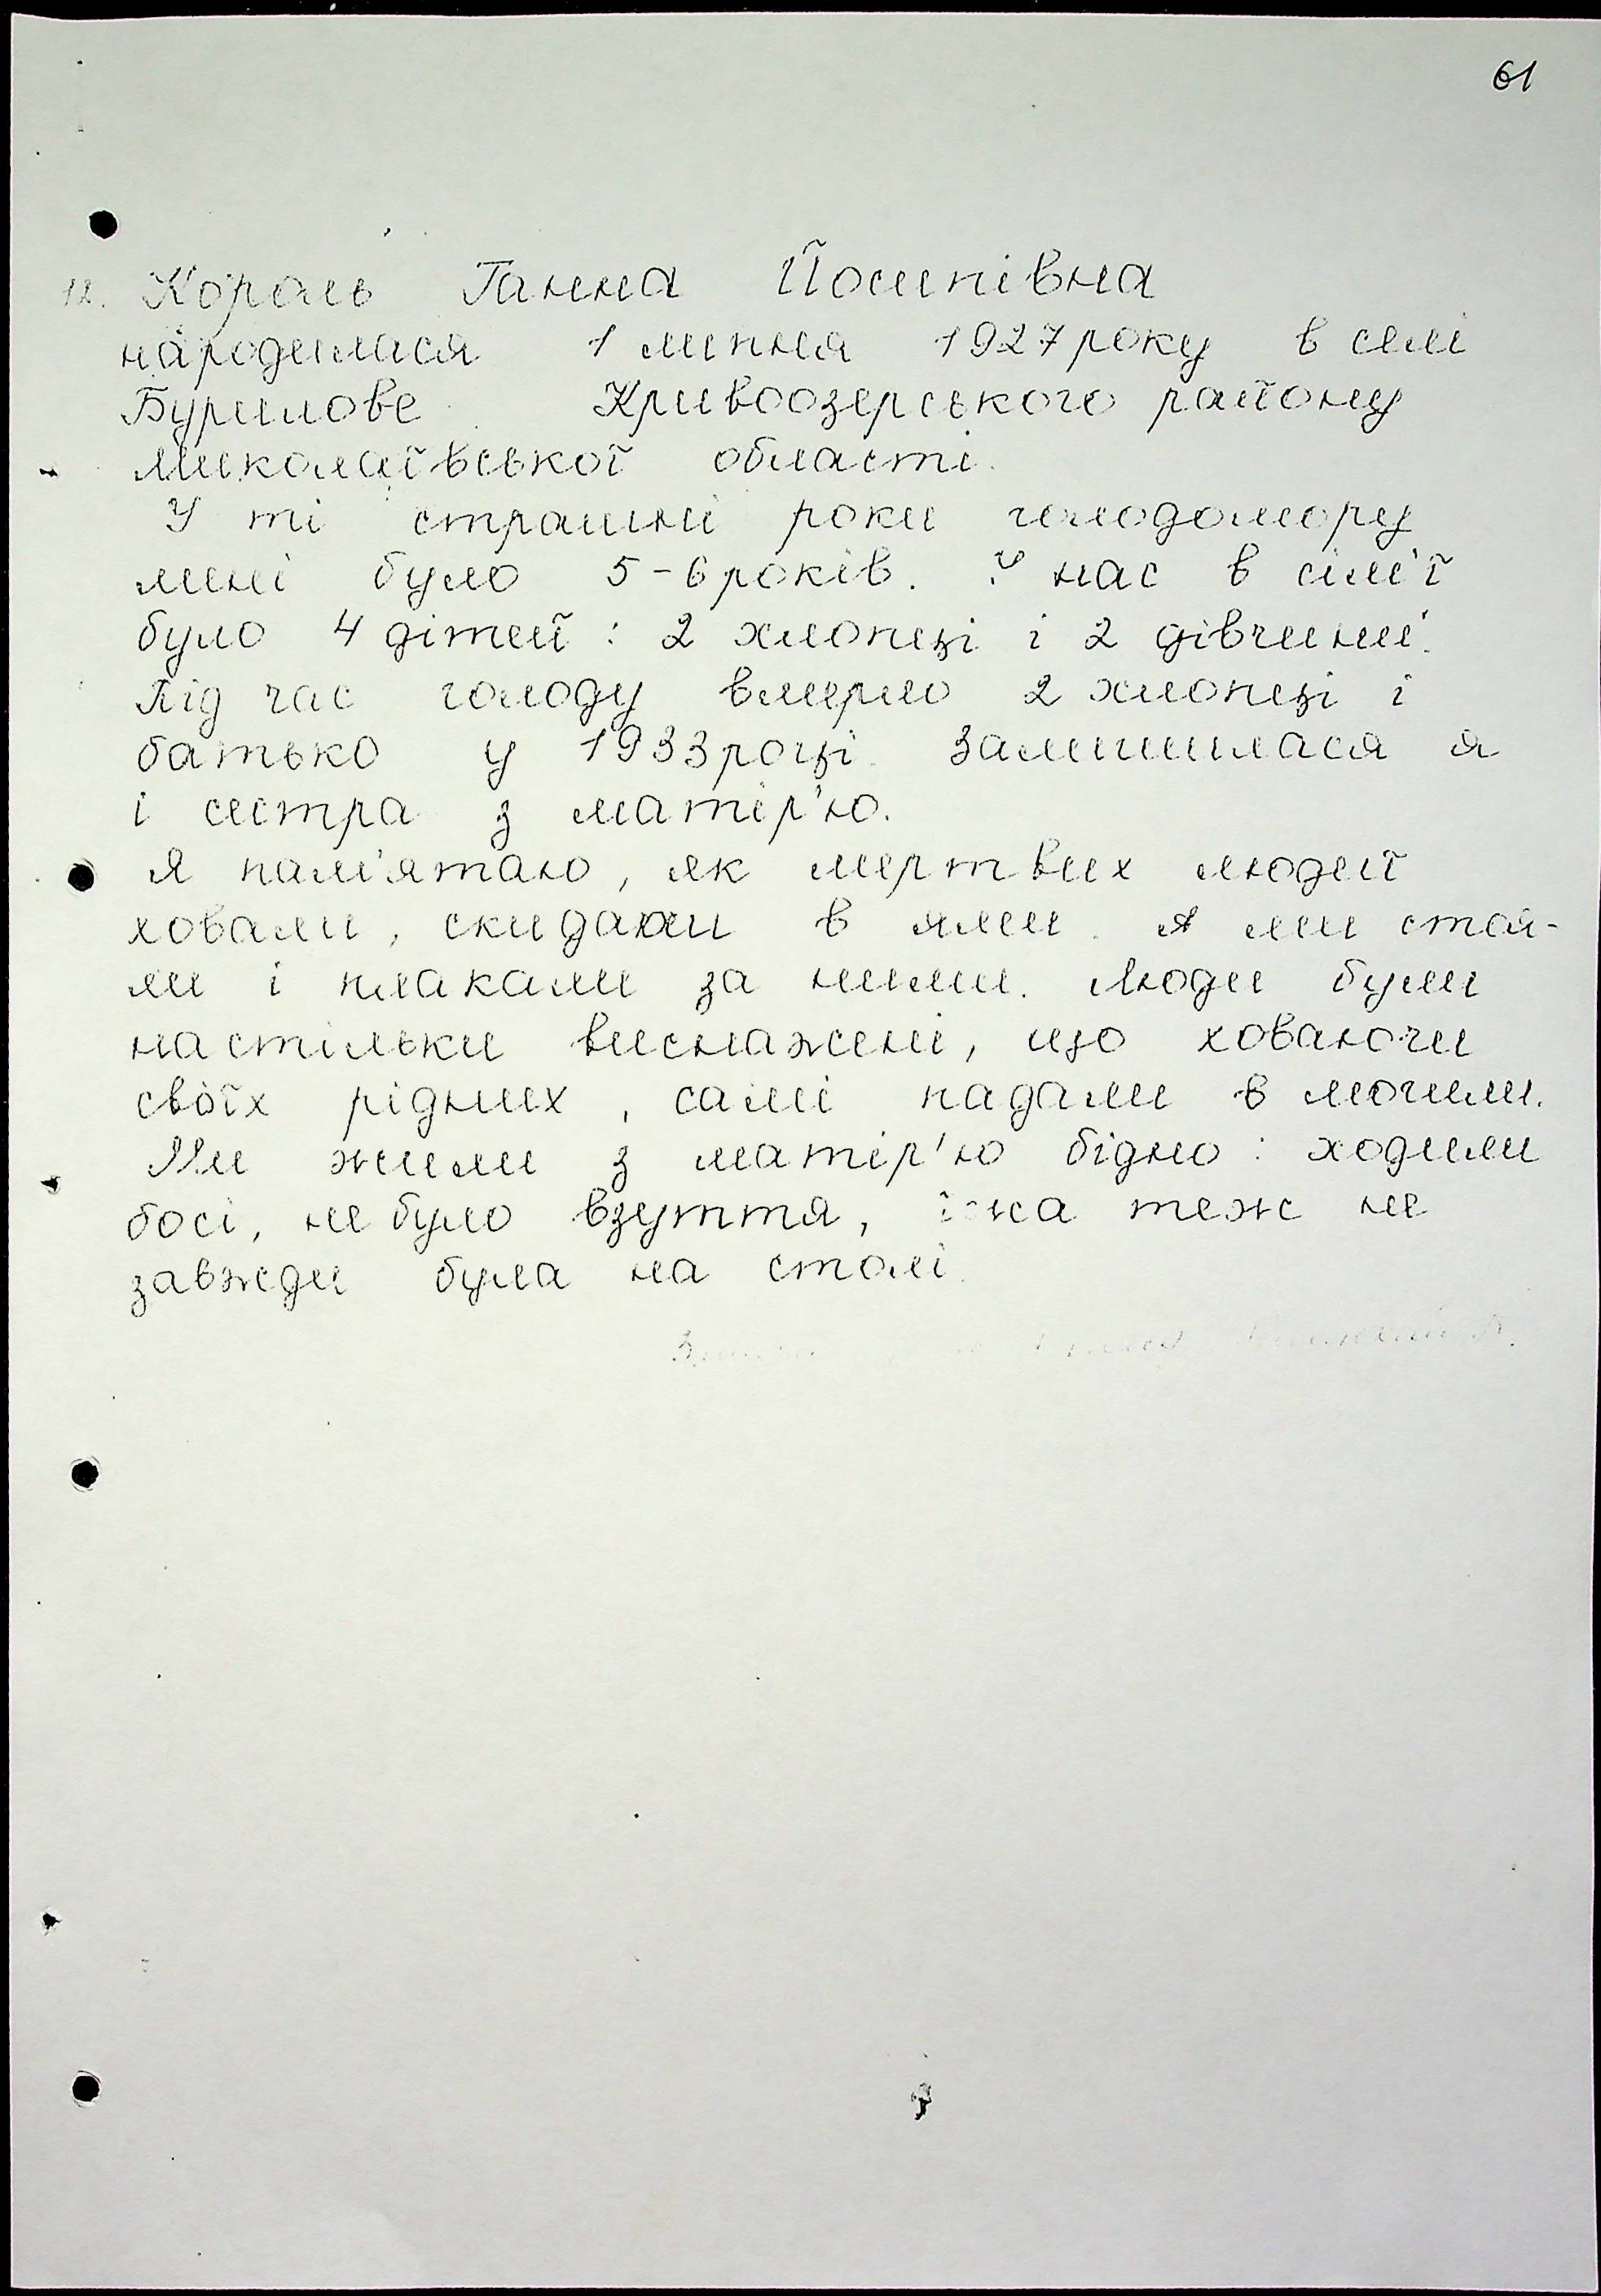 61
12. Король Ганна Йосипівна
народилася 1 липня 1927 року в селі
Бурилове Кривоозерського району
Миколаївської області.
У ті страшні роки голодомору
мені було 5-6 років. У нас в сім'ї
було 4 дітей : 2 хлопці і 2 дівчини.
Під час голоду вмерло 2 хлопці і
батько у 1933 році. Залишилася я
і сестра з матір'ю.
Я пам'ятаю, як мертвих людей
ховали, скидали в ями. А ми стоя-
ли і плакали за ними. Люди були
настільки виснажені, що ховаючи
своїх рідних, самі падали в могили.
Ми жили з матір'ю бідно : ходили
босі, не було взуття, їжа теж не
завжди була на столі.